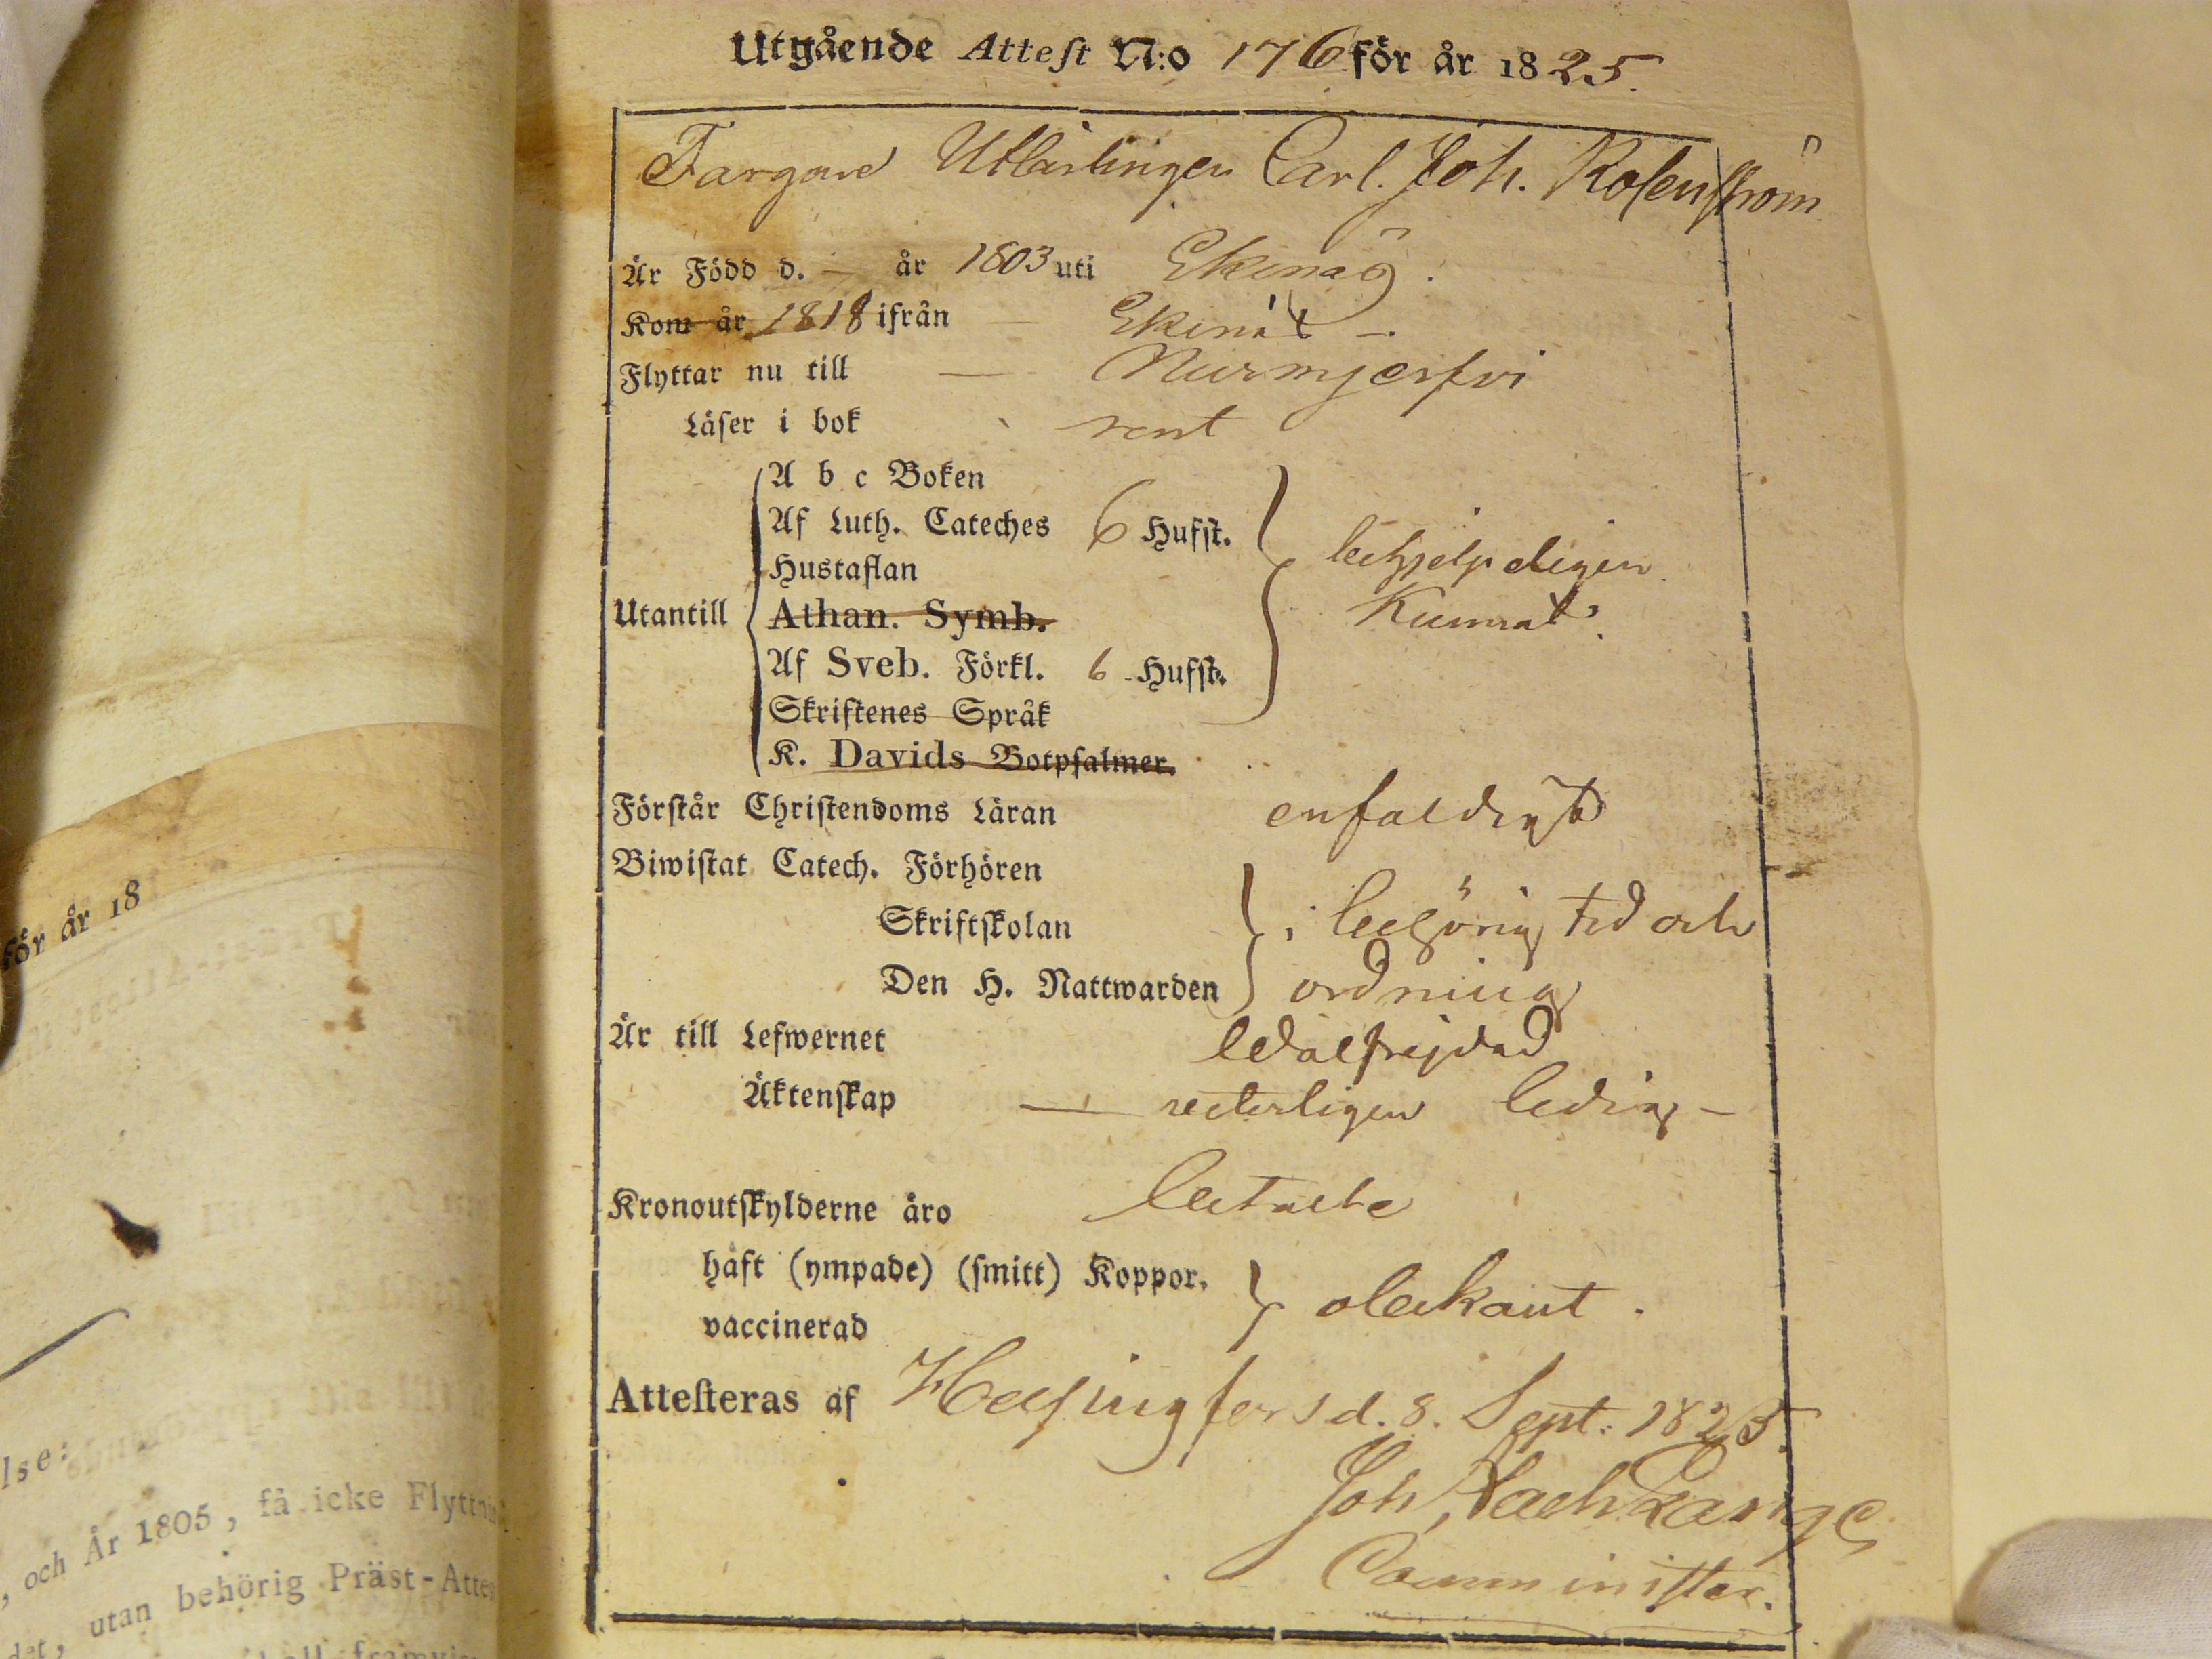 Utgående Attest N:o 176 för år 1825.
Färgare Utlärlingen Carl. Joh. Rosenström
Är Född d. — år 1803 uti Ekenäs.
Kom år 1818 ifrån — Ekenäs —.
Flyttar nu till — Nurmjerfvi
Läser i bok rent
A b c Boken
Af Luth. Cateches 6 Hufst.
Hustaflan
behjelpeligen
Utantill Athan. Symb.
Kunnat.
Af Sveb. Förkl. 6 Hufst.
Skriftenes Språk
K. Davids Botpsalmer.
Förstår Christendoms Läran enfaldigt
Biwistat Catech. Förhören
Skriftskolan i behörig tid och
Den H. Nattwarden ordning
Är till Lefwernet Wälfrejdad
Äktenskap — veterligen ledig —
Kronoutskylderne äro betalte
haft (ympade) (smitt) Koppor.
obekant.
vaccinerad
Attesteras af Helsingfors d. 8. Sept: 1825.
Joh, Zach Lange
Comminister.
för år 18
lse:
, och År 1805, få icke Flyttni
det, utan behörig Präst-Attes